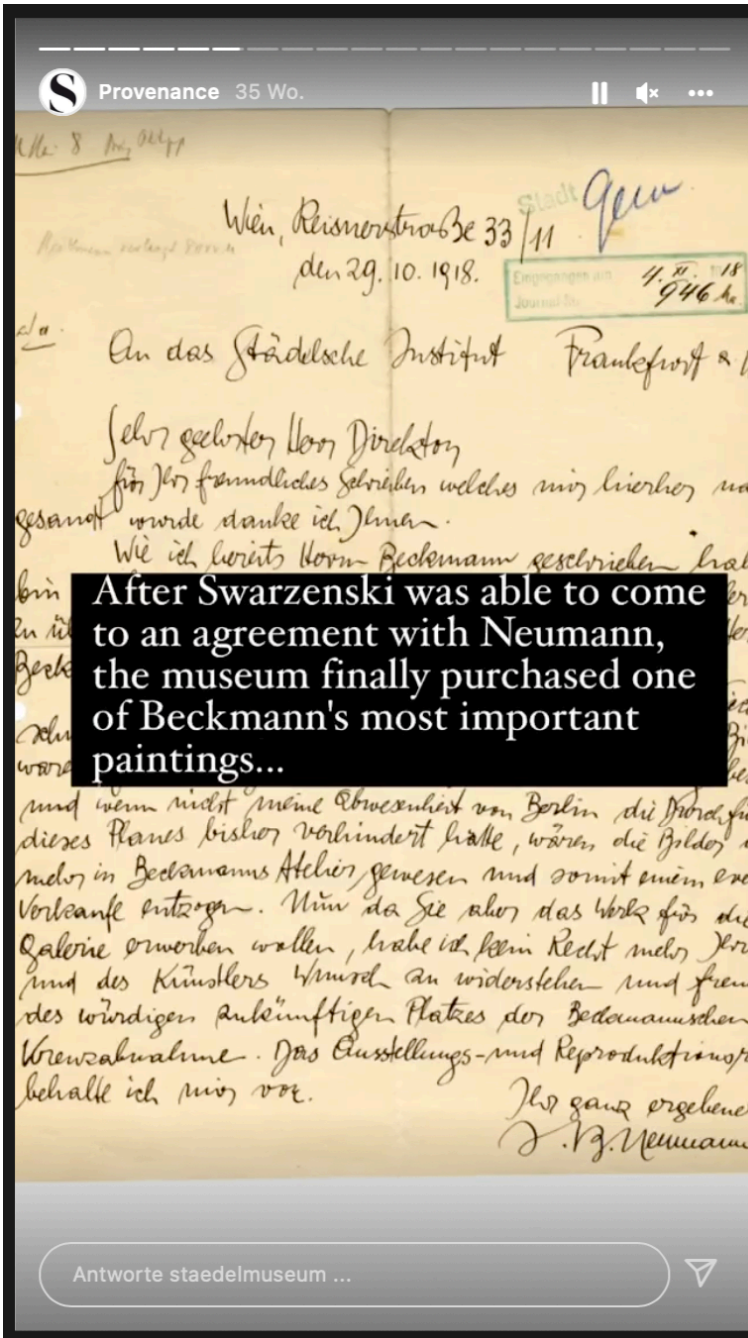 Provenance 35 Wo.
Stadt Gem
Wien, Reisnerstraße 33/11
den 29. 10. 1918.
Eingegangen am 4. XI. 1918
Journal-Nr. 946
An das Städelsche Institut Frankfurt a
Sehr geehrter Herr Direktor
für Ihr freundliches Schreiben welches mir hierher na
gesandt wurde danke ich Ihnen.
Wie ich bereits Herrn Beckmann geschrieben hab
bin
After Swarzenski was able to come
to an agreement with Neumann,
the museum finally purchased one
of Beckmann's most important
paintings...
zu üb
Beck
schr
ware
und wenn nicht meine Abwesenheit von Berlin die Durchfü
dieses Planes bisher verhindert hätte, wären die Bilder
mehr in Beckmanns Atelier gewesen und somit einem eve
Verkaufe entzogen. Nun da Sie aber das Werk für die
Galerie erwerben wollen, habe ich kein Recht mehr Ihr
und des Künstlers Wunsch zu widerstehen und freu
des würdigen zukünftigen Platzes der Beckmannschen
Kreuzabnahme. Das Ausstellungs- und Reproduktionsr
behalte ich mir vor.
Ihr ganz ergebene
J. B. Neumann
Antworte staedelmuseum ...